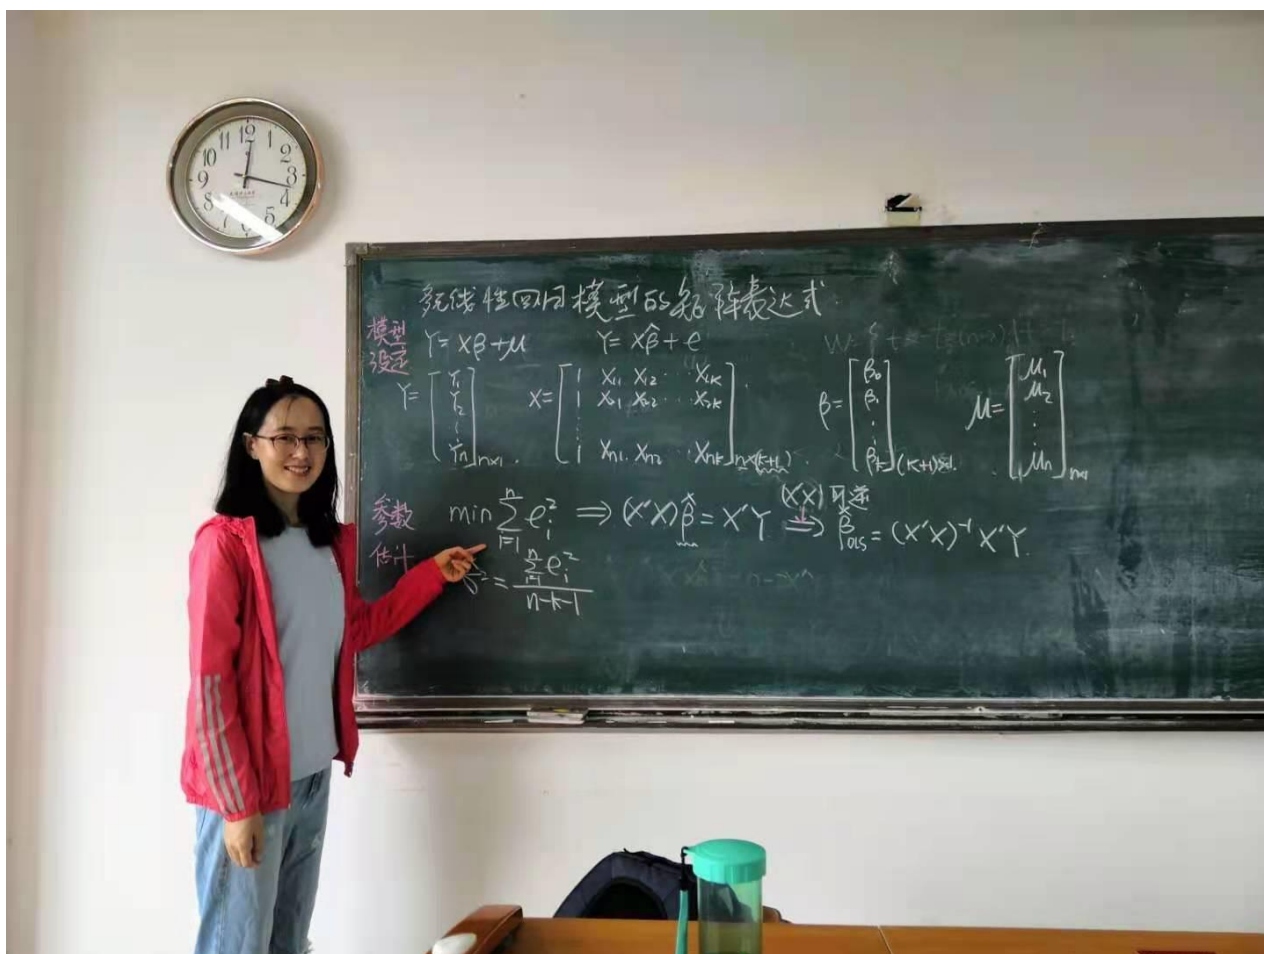 多元线性回归模型的矩阵表达式
模型
设定
Y=Xβ+μ Y=Xβ̂+e
Y=[Y₁ Y₂ ⋮ Yₙ]ₙₓ₁ X=[1 X₁₁ X₁₂ ⋯ X₁ₖ; 1 X₂₁ X₂₂ ⋯ X₂ₖ; ⋮; 1 Xₙ₁ Xₙ₂ ⋯ Xₙₖ]ₙₓ₍ₖ₊₁₎ β=[β₀ β₁ ⋮ βₖ]₍ₖ₊₁₎ₓ₁ μ=[μ₁ μ₂ ⋮ μₙ]ₙₓ₁
参数
估计
min Σᵢ₌₁ⁿ eᵢ² ⇒ (X'X)β̂=X'Y ⇒ β̂_OLS=(X'X)⁻¹X'Y
(X'X)可逆
σ̂²=Σᵢ₌₁ⁿ eᵢ²/(n-k-1)
12
1
2
3
4
5
6
7
8
9
10
11